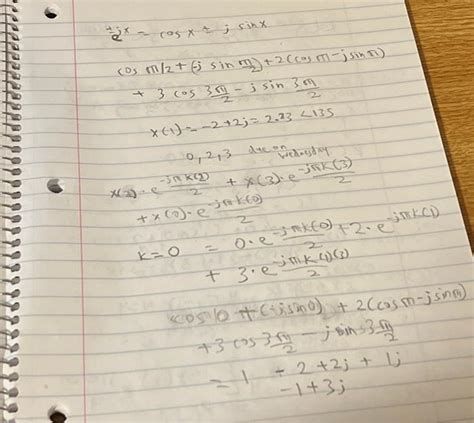 e^±jx = cos x ± j sin x
cos π/2 + (j sin π/2) + 2(cos π - j sin π)
+ 3 cos 3π/2 - j sin 3π/2
x(1) = -2+2j = 2.83 <135
0, 2, 3 due on wednesday
x(2)·e^-jπk(2)/2 + x(3)·e^-jπk(3)/2
+ x(0)·e^-jπk(0)/2
k=0 = 0·e^-jπk(0)/2 + 2·e^-jπk(1)
+ 3·e^-jπk(1)(2)/2
cos 0 + (-j sin 0) + 2(cos π - j sin π)
+ 3 cos 3π/2 - j sin 3π/2
= 1 - 2 + 2j + 1j
-1+3j